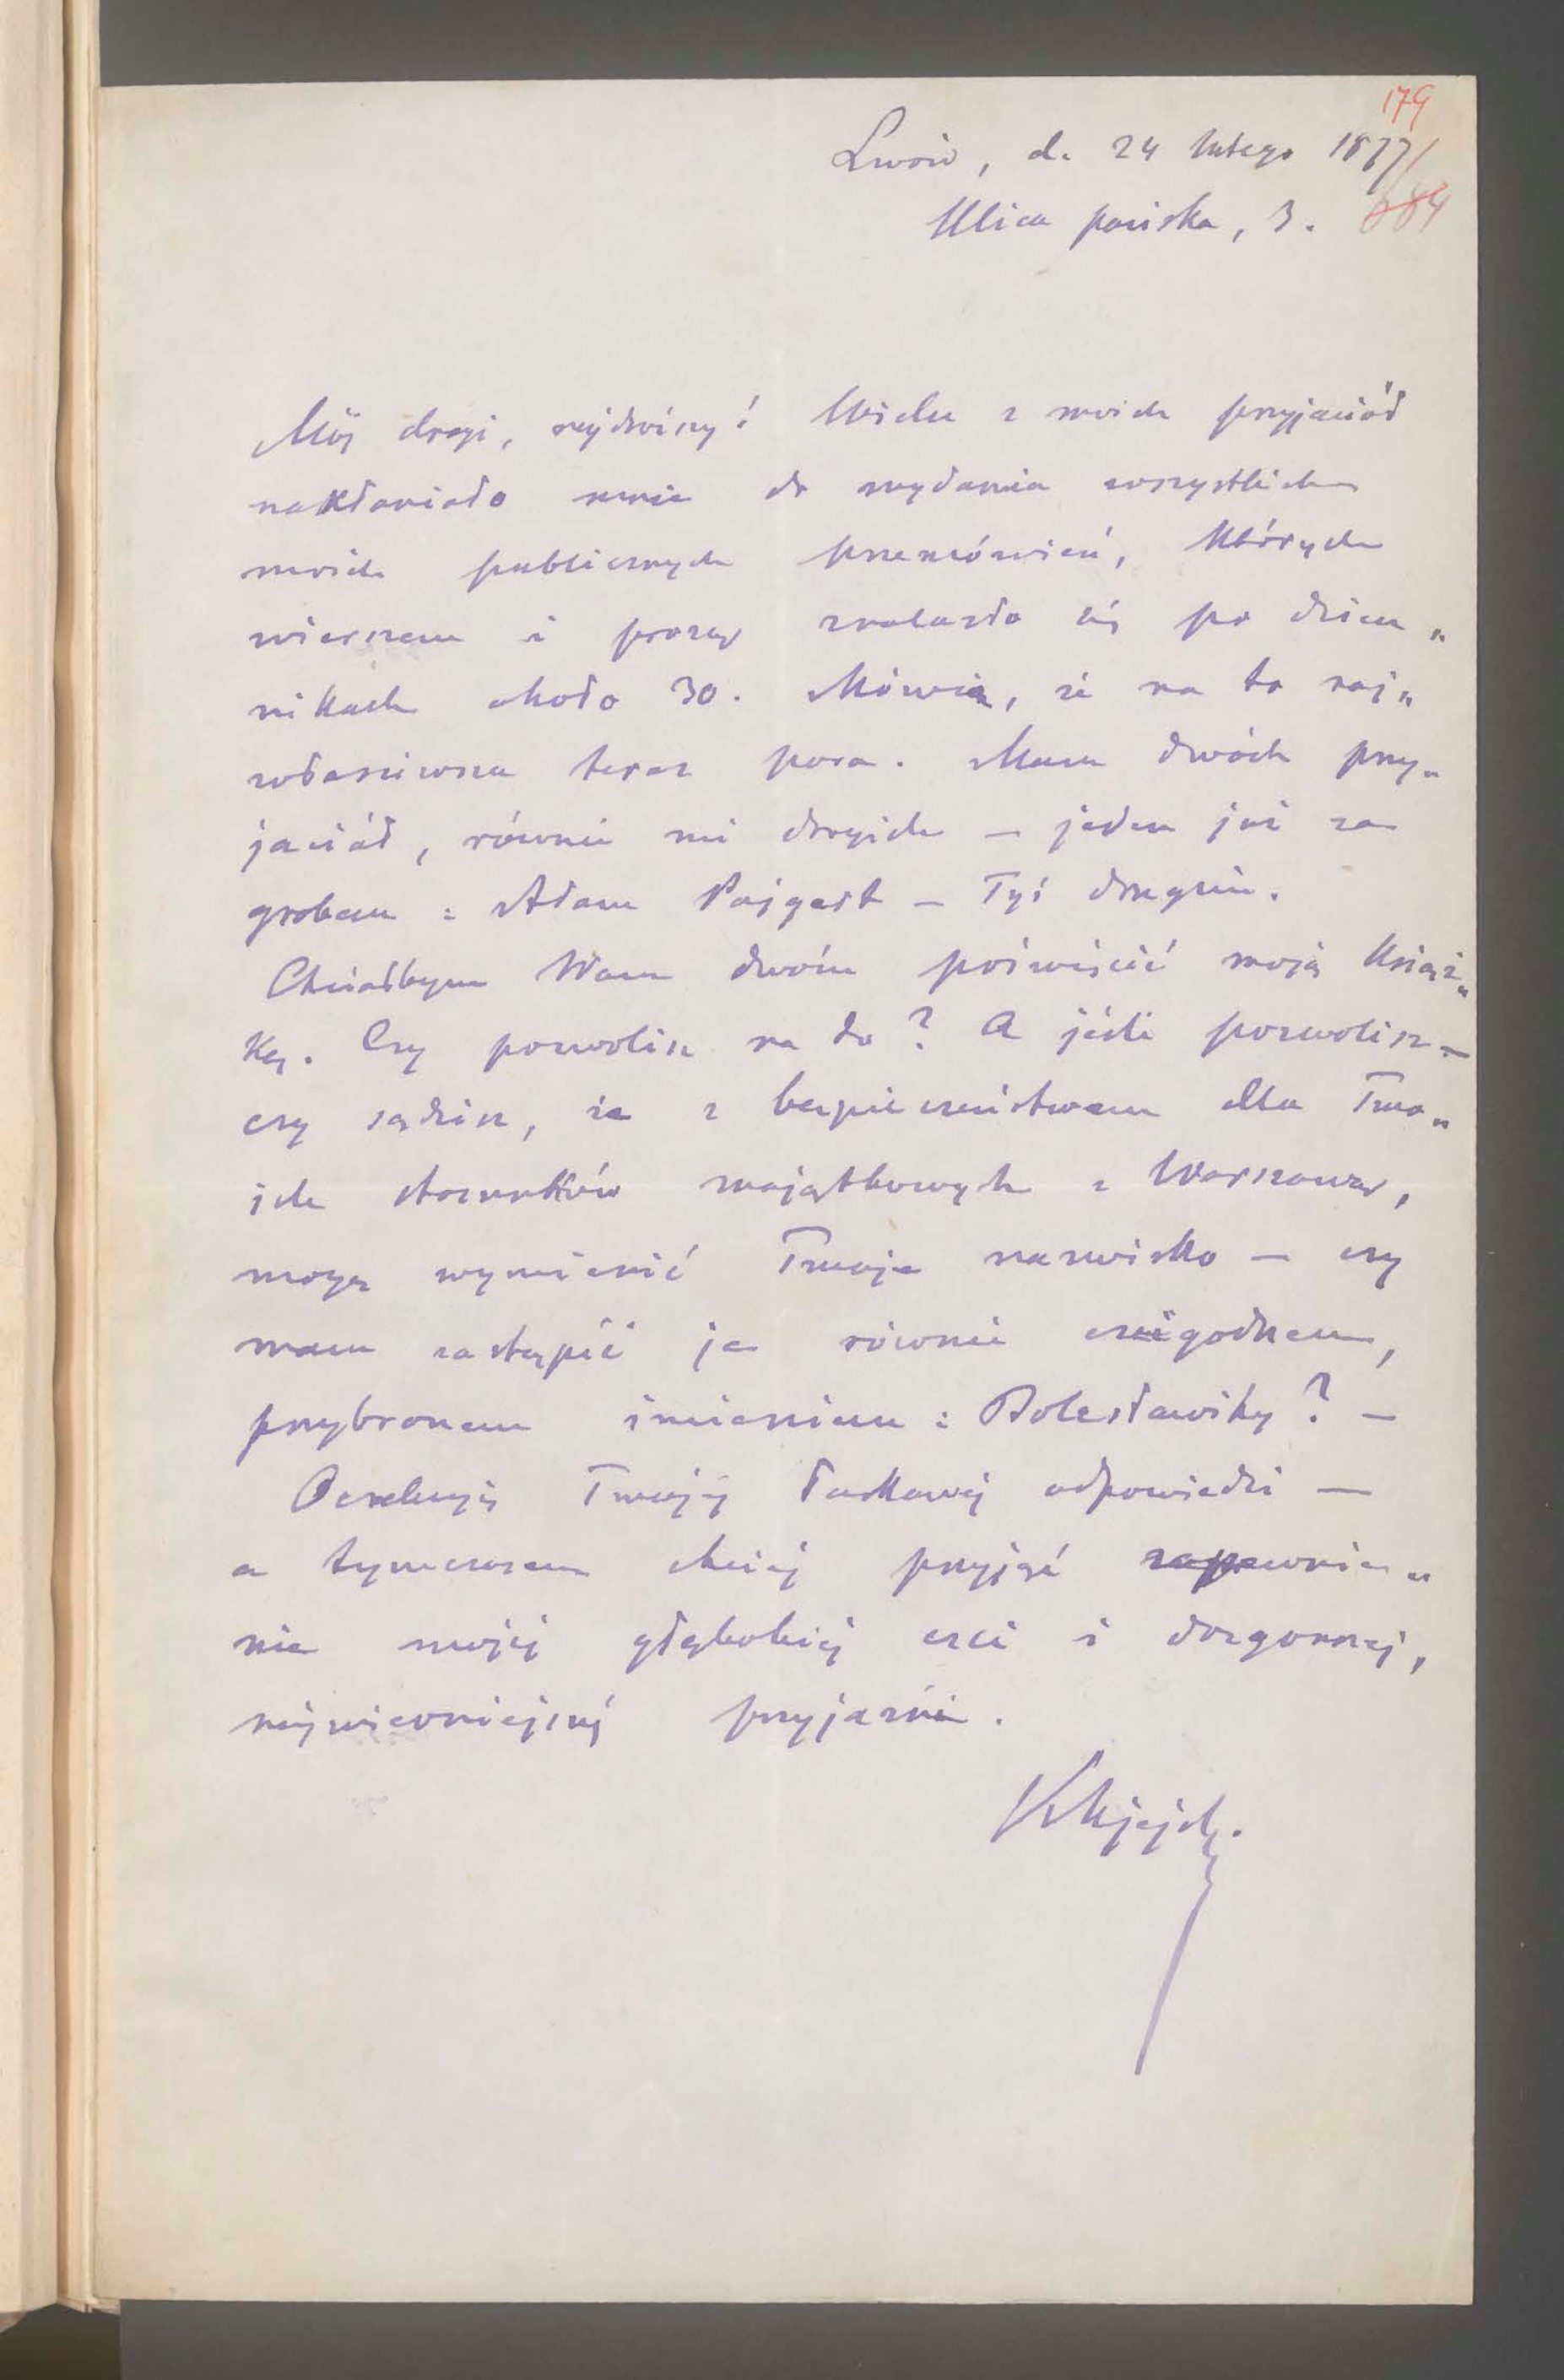 179
Lwów, d. 24 lutego 1877/
684
Ulica pańska, 3.
Mój drogi, najdroższy! Wielu z moich przyjaciół
nakłaniało mnie do wydania wszystkich
moich publicznych przemówień, których
wierszem i prozą znalazło się po dzien„
nikach około 30. Mówią, że na to naj„
właściwsza teraz pora. Mam dwóch przy„
jaciół, równie mi drogich — jeden już za
grobem : Adam Pajgert — Tyś drugim.
Chciałbym Wam dwóm poświęcić moją książ„
kę. Czy pozwolisz na to? A jeśli pozwolisz —
czy sądzisz, że z bezpieczeństwem dla Two„
ich stosunków majątkowych z Warszawą,
mogę wymienić Twoje nazwisko — czy
mam zastąpić je równie czcigodnem,
przybranem imieniem : Bolesławity? —
Oczekuję Twojéj łaskawéj odpowiedzi —
a tymczasem chciej przyjąć zapewnie„
nie mojéj głębokiéj czci i dozgonnej,
najwierniejszéj przyjaźni.